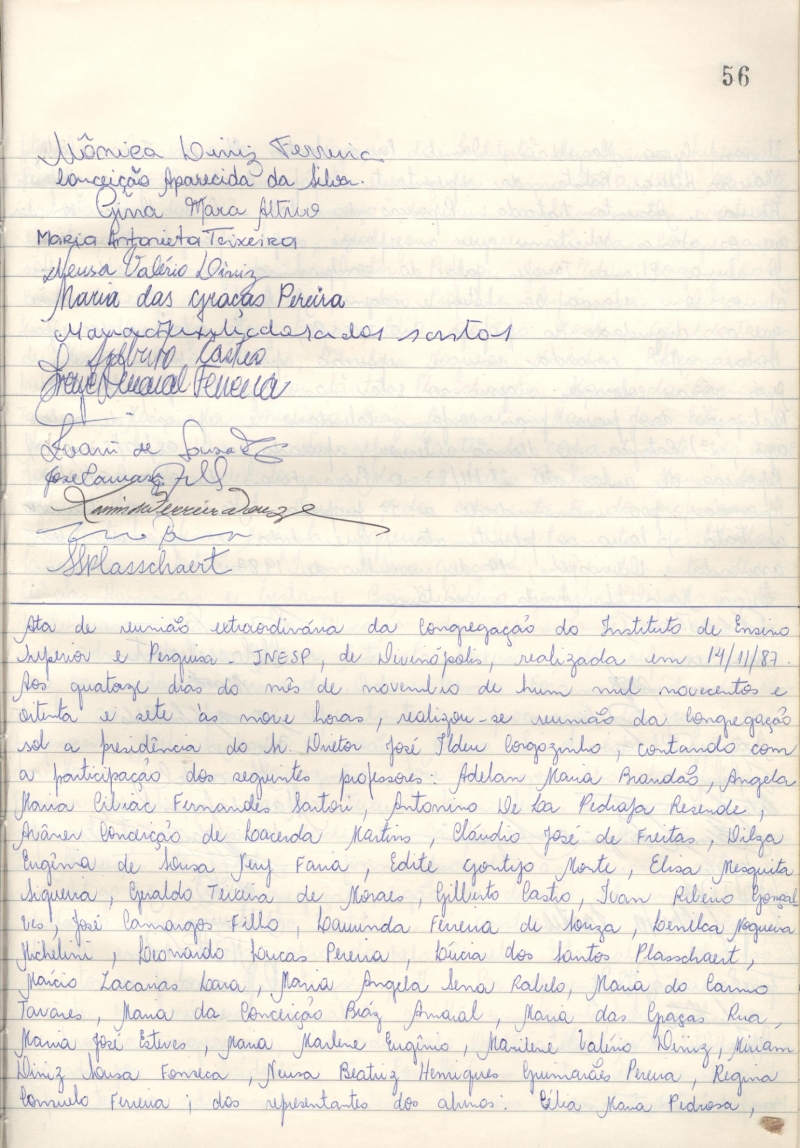 56
Mônica Diniz Ferreira
Conceição Aparecida da Silva.
Gina Mara
Maria Antonieta Teixeira
Neusa Valério Diniz
Maria das Graças Pereira
dos santos
Gilberto Castro
Ferreira
de Souza
José Camargos Filho
Ferreira Souza
LSPlasschaert
Ata de reunião extraordinária da Congregação do Instituto de Ensino
Superior e Pesquisa - INESP, de Divinópolis, realizada em 14/11/87.
Aos quatorze dias do mês de novembro de hum mil novecentos e
oitenta e sete às nove horas, realizou-se reunião da Congregação
sob a presidência do Sr. Diretor José Ildeu Gorgozinho, contando com
a participação dos seguintes professores: Adelan Maria Brandão, Angela
Maria Ciliác Fernandes Sartori, Antonino De La Pedraja Resende,
Conceição de Lacerda Martins, Cláudio José de Freitas, Dilza
Eugênia de Sousa Nery Faria, Edite Gontijo Monte, Elisa Mesquita
Siqueira, Geraldo Teixeira de Moraes, Gilberto Castro, Ivan Ribeiro Gonçal
ves, José Camargos Filho, Laurinda Ferreira de Souza, Lenilca Nogueira
Michelini, Leonardo Lucas Pereira, Lúcia dos Santos Plasschaert,
Márcio Zacarias Lara, Maria Angela Sena Rabelo, Maria do Carmo
Tavares, Maria da Conceição Bráz Amaral, Maria das Graças Rua,
Maria José Esteves, Maria Marlene Eugênio, Marilene Valério Diniz, Miriam
Diniz Sousa Fonseca, Neusa Beatriz Henriques Guimarães Pereira, Regina
Consuelo Ferreira; dos representantes dos alunos: Célia Maria Pedrosa,